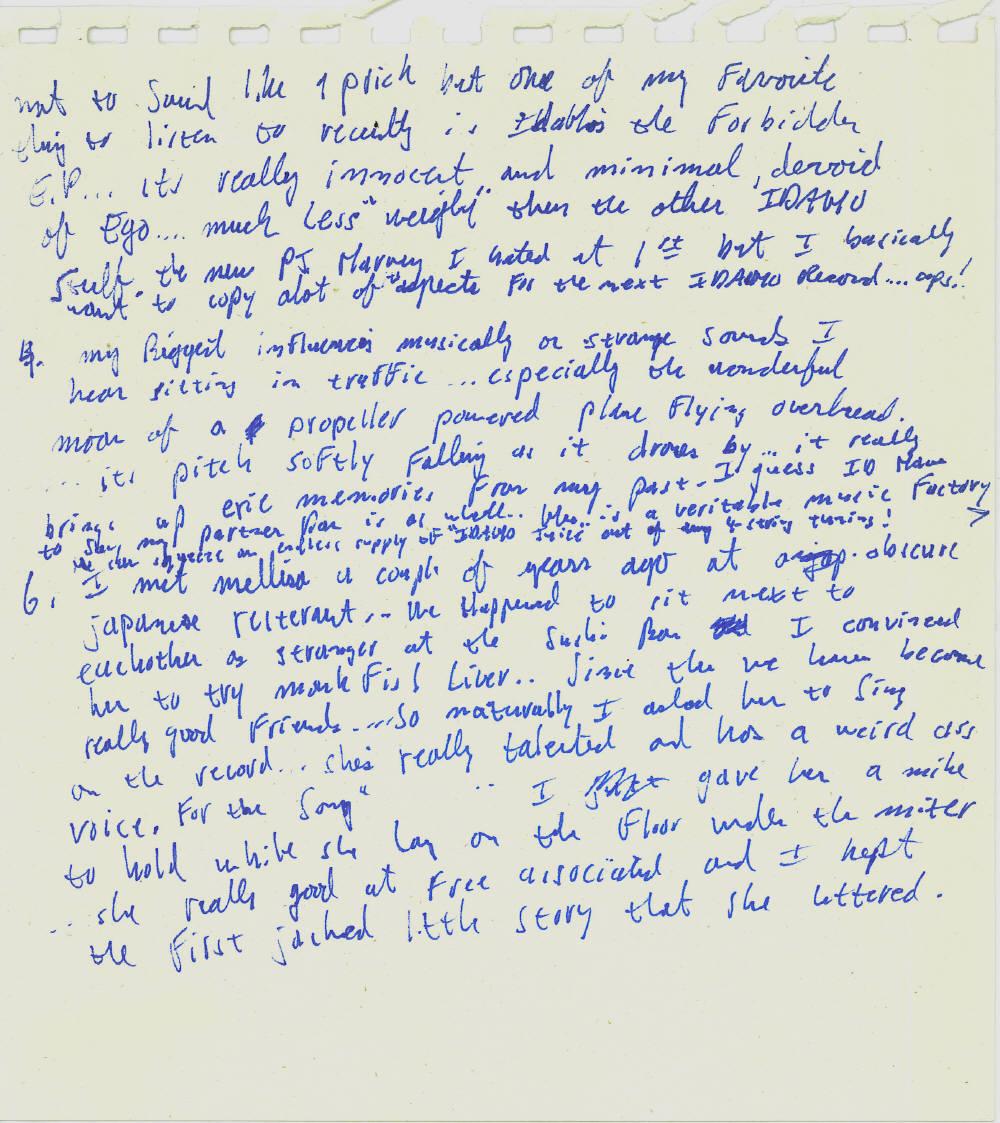 not to sound like a prick but one of my favorite
thing to listen to recently is Idaho's the Forbidden
E.P... its really innocent and minimal, devoid
of Ego.... much less "weighty" then the other IDAHO
stuff. the new PJ Harvey I hated at 1st but I basically
want to copy alot of aspects For the next IDAHO Record.... oops!
my Biggest influences musically or strange sounds I
hear sitting in traffic ... especially the wonderful
moan of a propeller powered plane flying overhead.
... its pitch softly Falling as it drones by... it really
brings up eric memories From my past. I guess ID Have
to say my partner Dan is as well.. is a veritable music Factory >
we can squeeze an endless supply of "IDAHO juice out of my 4-string tuning!
6. I met mellisa a couple of years ago at a obscure
japanese resterant... we Happened to sit next to
eachother as stranger at the Sushi Bar I convinced
her to try monk Fish Liver.. Since then we have become
really good Friends.....So naturally I asked her to Sing
on the record... she's really talented and has a weird ass
voice. For the Song" .. I gave her a mike
to hold while she lay on the Floor under the
.. she really good at Free associated and I kept
the First little story that she uttered.